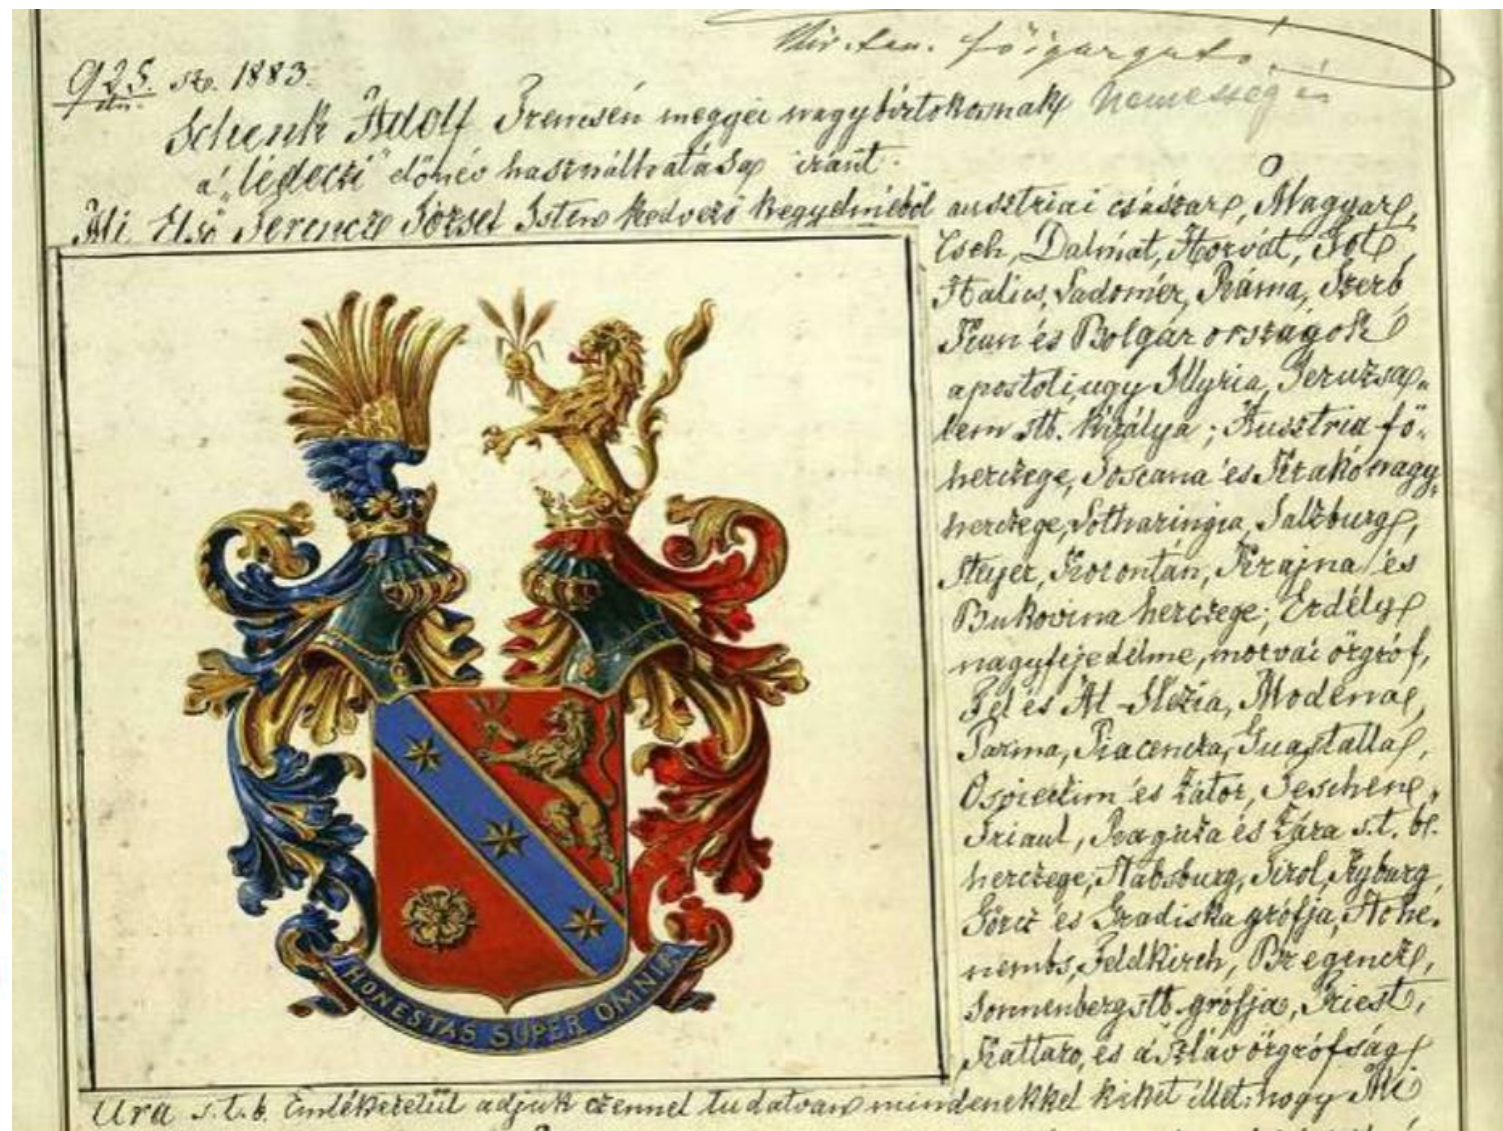 főigazgató
925. sz. 1883.
Schenk Adolf Trencsén megyei nagybirtokosnak Nemesség és
a „lédeczi" előnév használhatása iránt.
Mi Első Ferencz József Isten kedvező kegyelméből ausztriai császár, Magyar,
Cseh, Dalmát, Horvát, Tót,
Halics, Ladomér, Ráma, Szerb,
Kun és Bolgár országok
apostoli, ugy Illyria, Jeruzsa„
lem stb. királya; Ausztria fő„
herczege, Toscana és Krakó nagy„
herczege, Lotharingia, Salzburg,
Steyer, Korontán, Krajna és
Bukovina herczege; Erdély
nagyfejedelme, morvai őrgróf,
Fel és Al-Slezia, Modena,
Parma, Piacenza, Guastalla,
Osviecim és Zátor, Teschen,
Friaul, Raguza és Zára s.t.b.
herczege, Habsburg, Tirol, Kyburg,
Görcz és Gradiska grófja, Hohe„
nembs, Feldkirch, Bregencz,
Sonnenberg stb. grófja, Triest,
Kattaro, és a Szláv őrgrófság
Ura s.t.b. Emlékezetül adjuk ezennel tudatván mindenekkel kiket illet: hogy Mi
HONESTAS SUPER OMNIA